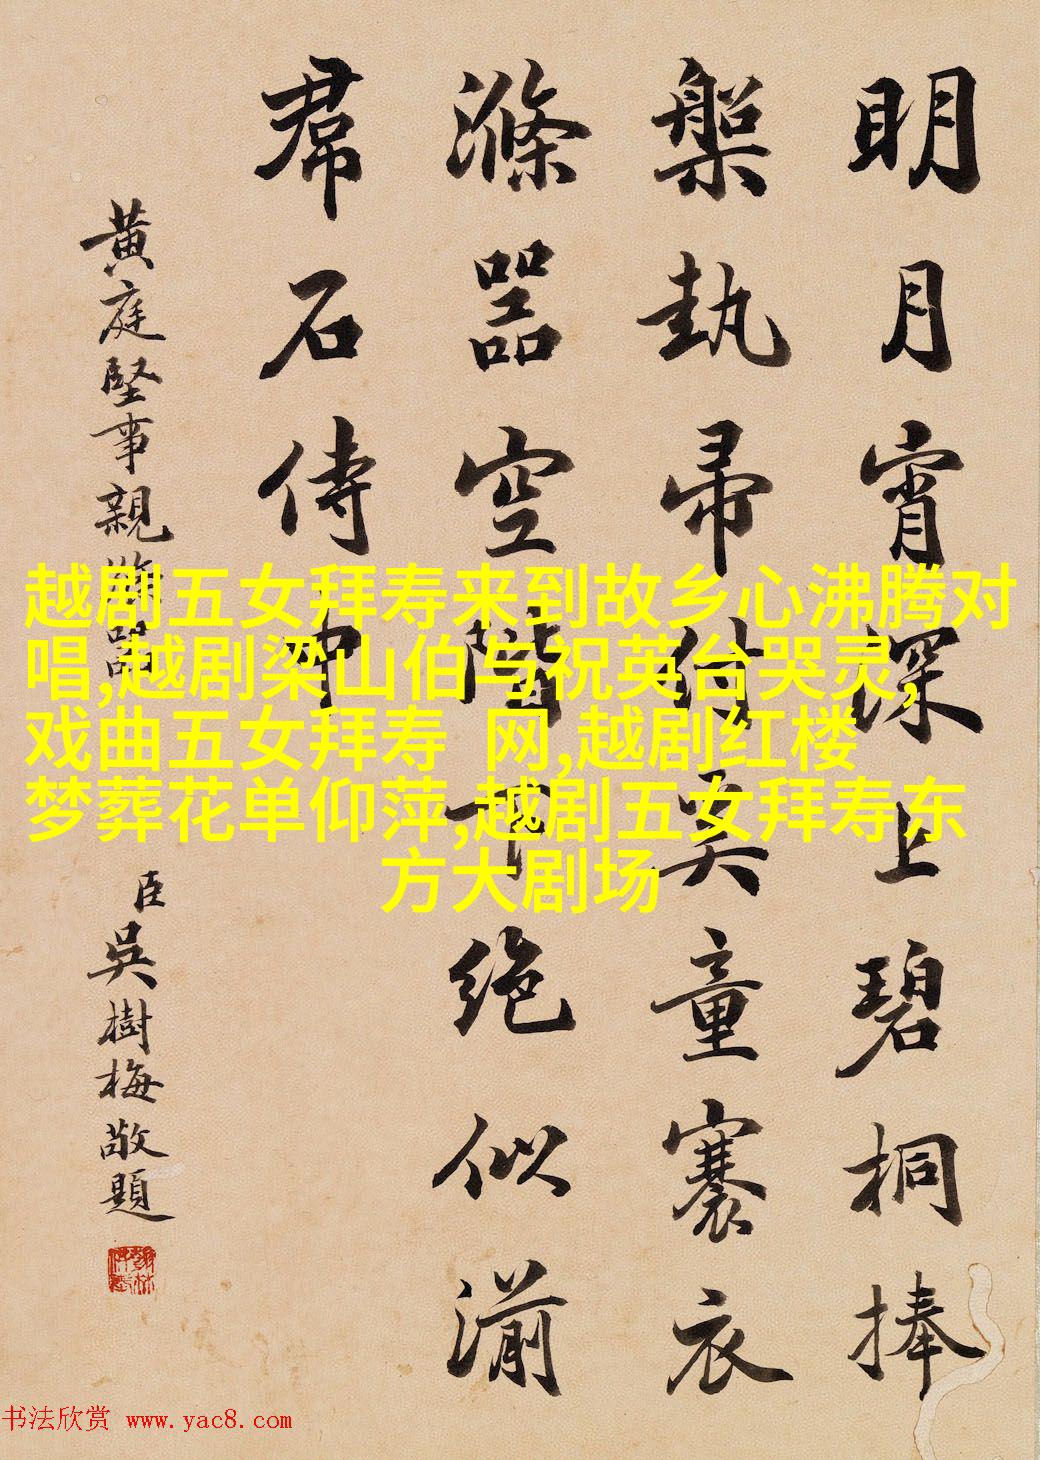 明月宵深上碧桐捧
槃執帚付奚童褰衣
滌器空階下絶似湔
帬石侍中
黄庭堅事親滌器
臣吳樹梅敬題
越剧五女拜寿来到故乡心沸腾对
唱,越剧梁山伯与祝英台哭灵,
戏曲五女拜寿 网,越剧红楼
梦葬花单仰萍,越剧五女拜寿东
方大剧场
书法欣赏 www.yac8.com